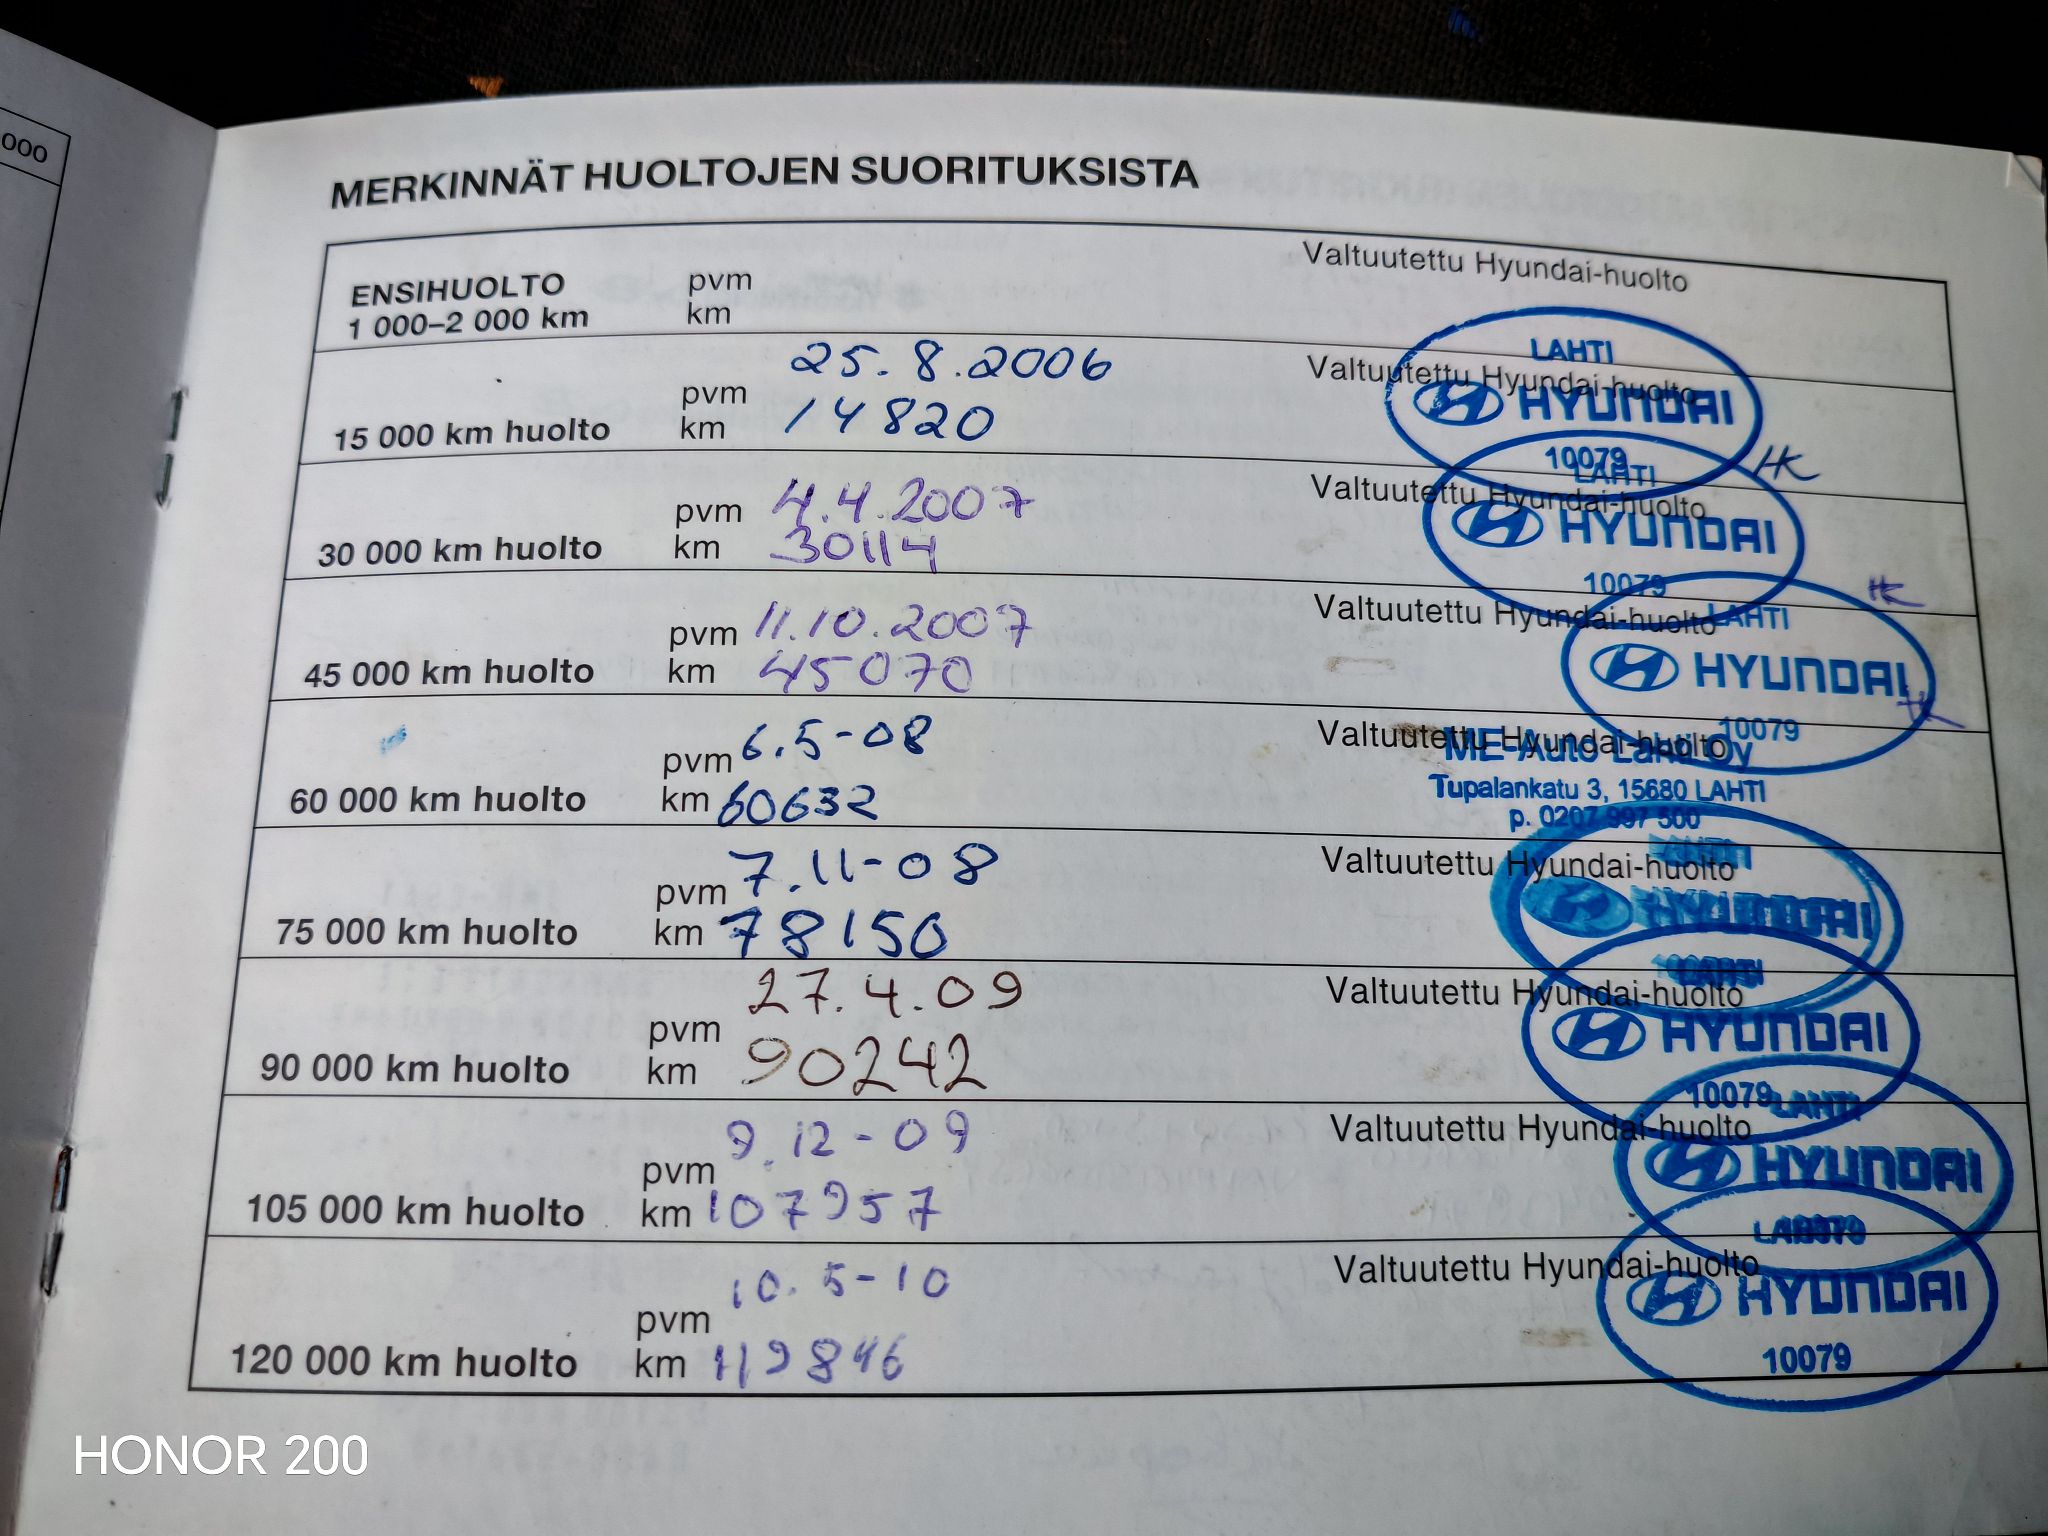 000
MERKINNÄT HUOLTOJEN SUORITUKSISTA
ENSIHUOLTO
1 000–2 000 km
pvm
km
Valtuutettu Hyundai-huolto
15 000 km huolto
pvm 25.8.2006
km 14820
Valtuutettu Hyundai-huolto
LAHTI
HYUNDAI
10079
HK
30 000 km huolto
pvm 4.4.2007
km 30114
Valtuutettu Hyundai-huolto
LAHTI
HYUNDAI
10079
HK
45 000 km huolto
pvm 11.10.2007
km 45070
Valtuutettu Hyundai-huolto
LAHTI
HYUNDAI
10079
HK
60 000 km huolto
pvm 6.5-08
km 60632
Valtuutettu Hyundai-huolto
ME-Auto Lahti Oy
Tupalankatu 3, 15680 LAHTI
p. 0207 997 500
75 000 km huolto
pvm 7.11-08
km 78150
Valtuutettu Hyundai-huolto
LAHTI
HYUNDAI
90 000 km huolto
pvm 27.4.09
km 90242
Valtuutettu Hyundai-huolto
LAHTI
HYUNDAI
10079
105 000 km huolto
pvm 9.12-09
km 107957
Valtuutettu Hyundai-huolto
LAHTI
HYUNDAI
10079
120 000 km huolto
pvm 10.5-10
km 119846
Valtuutettu Hyundai-huolto
LAHTI
HYUNDAI
10079
HONOR 200